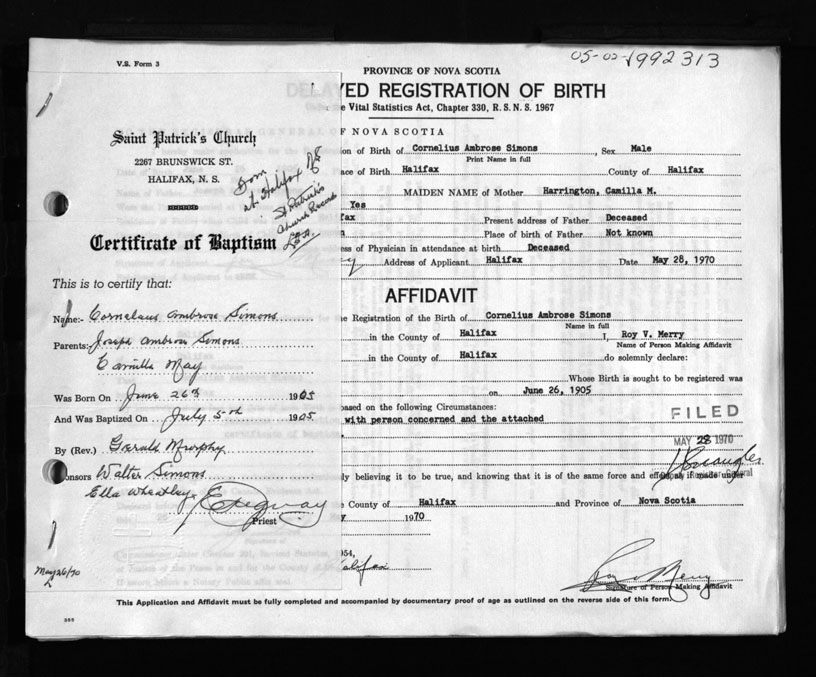 V.S. Form 3
05-02-1992313
PROVINCE OF NOVA SCOTIA
DELAYED REGISTRATION OF BIRTH
Vital Statistics Act, Chapter 330, R.S.N.S. 1967
OF NOVA SCOTIA
Saint Patrick's Church
2267 BRUNSWICK ST.
HALIFAX, N. S.
Born
at Halifax NS
St Patrick's
Church Record
Certificate of Baptism
This is to certify that:
Name:- Cornelaus Ambrose Simons
Parents: Joseph Ambrose Simons
Camilla May
Was Born On June 26th 1905
And Was Baptized On July 5th 1905
By (Rev.) Gerald Murphy
Sponsors Walter Simons
Ella Wheatley
Priest
May 26/70
Birth of Cornelius Ambrose Simons, Sex Male
Print Name in full
Place of Birth Halifax County of Halifax
MAIDEN NAME of Mother Harrington, Camilla M.
Yes
fax Present address of Father Deceased
Place of birth of Father Not known
ess of Physician in attendance at birth Deceased
Address of Applicant Halifax Date May 28, 1970
AFFIDAVIT
e Registration of the Birth of Cornelius Ambrose Simons
Name in full
in the County of Halifax I, Roy V. Merry
Name of Person Making Affidavit
in the County of Halifax do solemnly declare:
Whose Birth is sought to be registered was
on June 26, 1905
based on the following Circumstances:
with person concerned and the attached
FILED
MAY 28 1970
ly believing it to be true, and knowing that it is of the same force and effect as if made under
e County of Halifax and Province of Nova Scotia
1970
954,
Halifax
Signature of Person Making Affidavit
This Application and Affidavit must be fully completed and accompanied by documentary proof of age as outlined on the reverse side of this form.